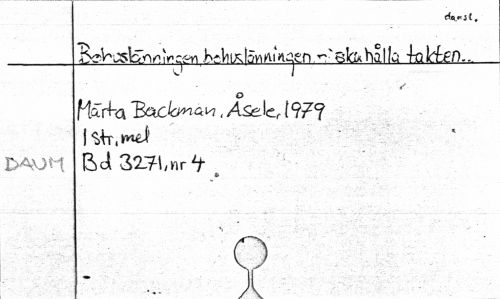 dansl.
Bohuslänningen, bohuslänningen ni ska hålla takten..
Märta Backman, Åsele, 1979
1 str, mel
DAUM Bd 3271, nr 4.